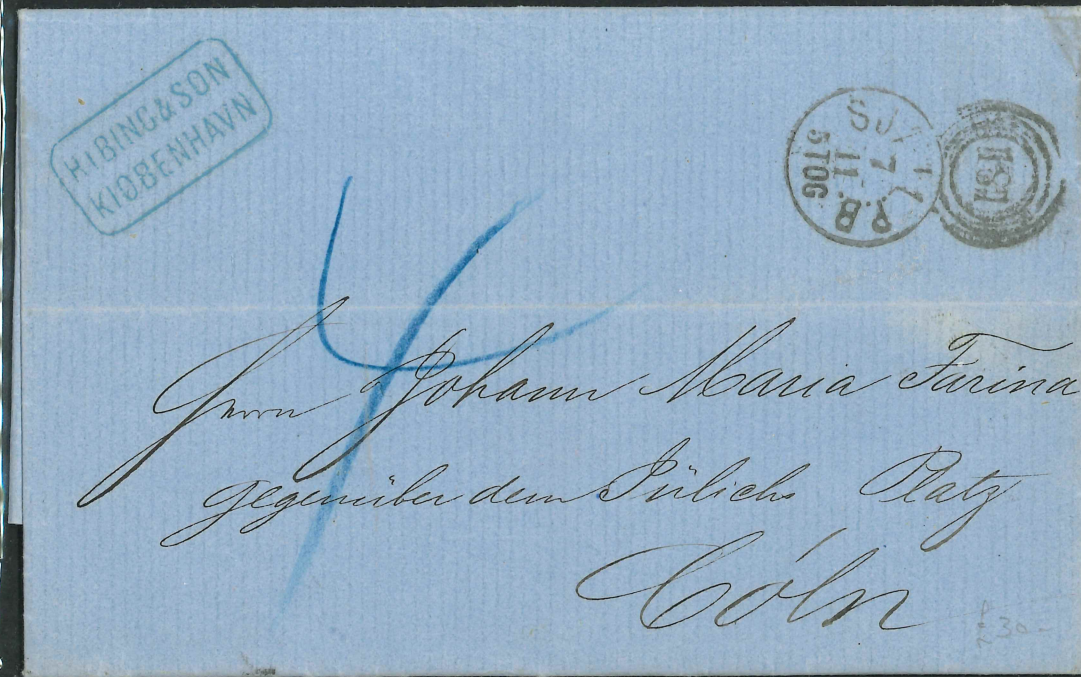 HIBING & SON
KIØBENHAVN
SJÆLL
7
11
P.B.
5 TOG
181
4
Herrn Johann Maria Farina
gegenüber dem Jülichs Platz
Cöln
30-